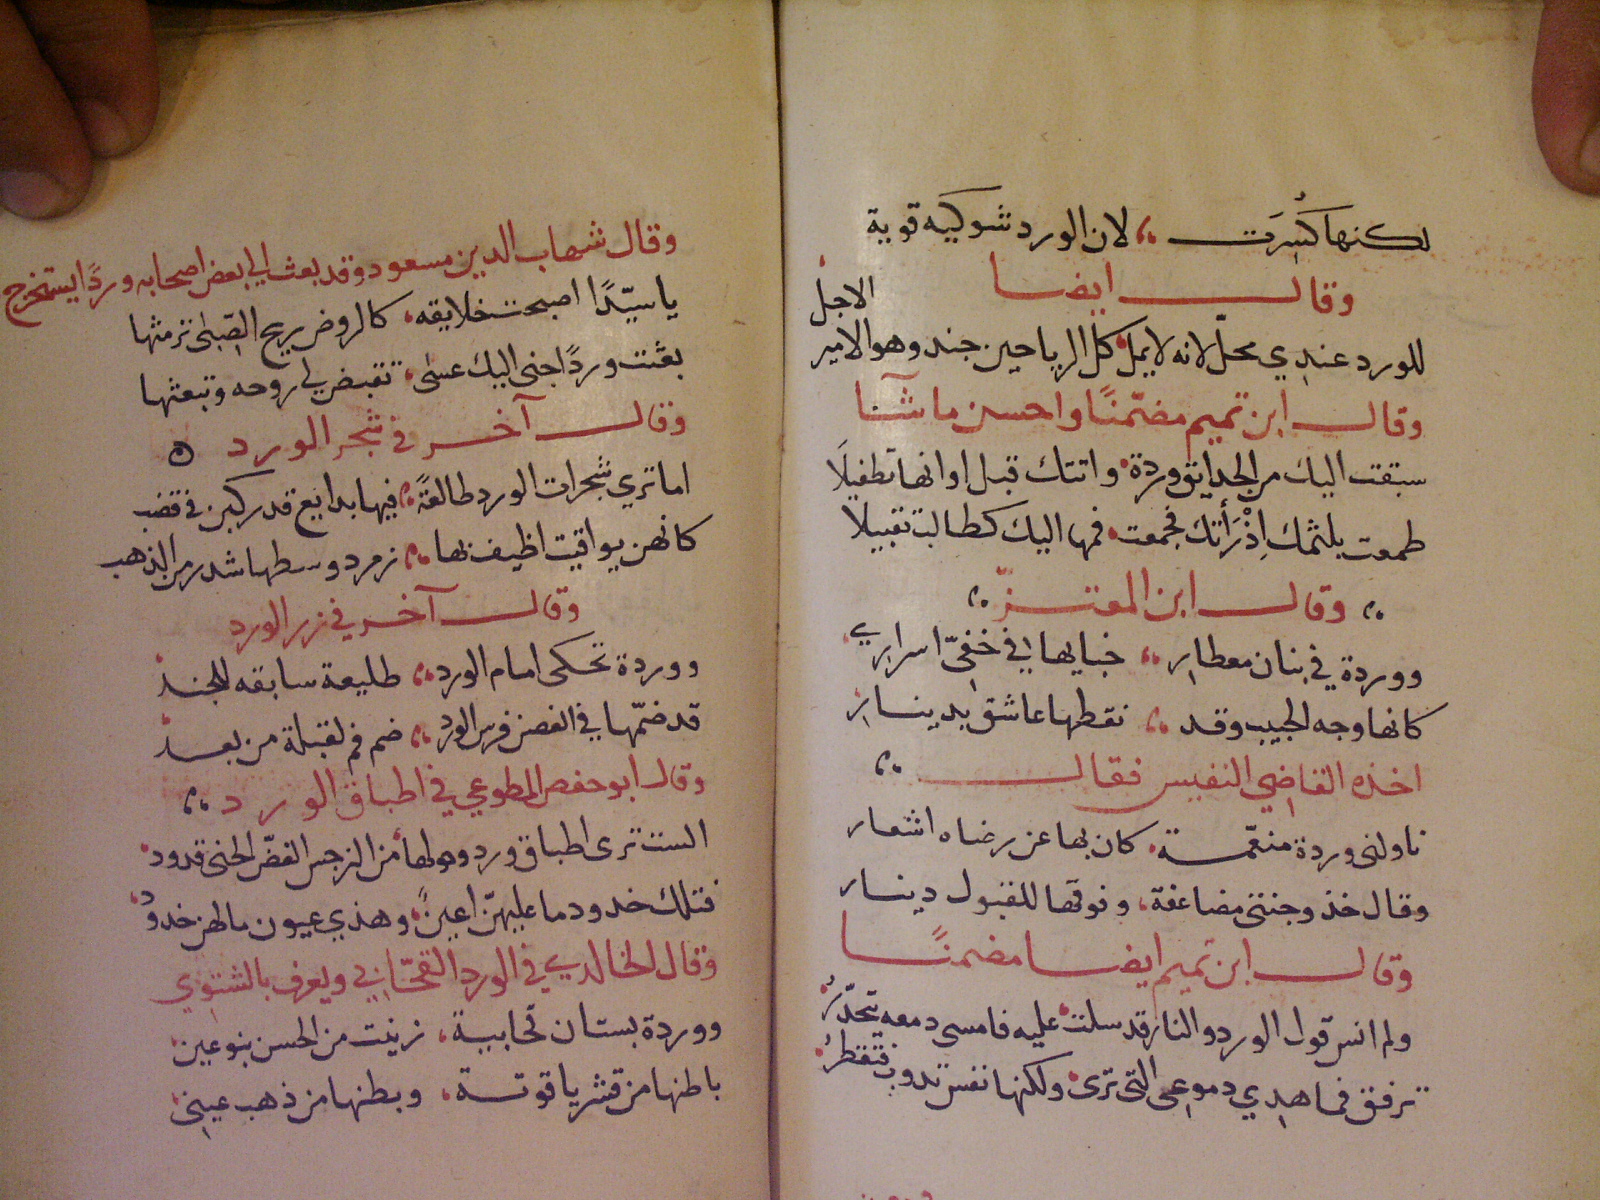 لكنها كسرت لان الورد شوكيه قوية
وقال ايضا
للورد عندي محل لانه لا يمل كل الرياحين جند وهو الامير الاجل
وقال ابن تميم مضمنا واحسن ما شآ
سبقت اليك من الحدايق وردة واتتك قبل اوانها تطفيلا
طمعت بلثمك اذ رأتك فجمعت فمها اليك كطالب تقبيلا
وقال ابن المعتز
ووردة في بنان معطار خبايها في خفي اسراري
كانها وجه الحبيب وقد نقطها عاشق بدينار
اخذه القاضي النفيس فقال
ناولني وردة منعمة كان بها عن رضاه اشعار
وقال خذ وجنتي مضاعفة وفوقها للقبول دينار
وقال ابن تميم ايضا مضمنا
ولم انس قول الورد والنار قد سلت عليه فامسى دمعه يتحدر
ترفق فما هذي دموعي التي ترى ولكنها نفس تذوب فتقطر
وقال شهاب الدين مسعود وقد بعث الى بعض اصحابه وردا يستخرج
يا سيدا اصبحت خلايقه كالروض ريح الصبى ترمثها
بعثت وردا جنى اليك عسى تقبض لي روحه وتبعثها
وقال آخر في شجر الورد
اما تري شجرات الورد طالعة فيها بدايع قد ركبن في قضب
كانهن يواقيت اظيف بها زمرد وسطها شدر من الذهب
وقال آخر في زر الورد
ووردة تحكى امام الورد طليعة سابقه للجند
قد ضمها في الغصن قرس الورد ضم فم لقبلة من بعد
وقال ابو حفص المطوعي في اطباق الورد
الست ترى اطباق ورد وحولها من النرجس الغض الجنى قدود
فتلك خدود ما عليهن اعين وهذي عيون ما لهن خدود
وقال الخالدي في الورد القحابي ويعرف بالشتوي
ووردة بستان قحابية زينت من الحسن بنوعين
باطنها من قشر ياقوتة وبطنها من ذهب عيني